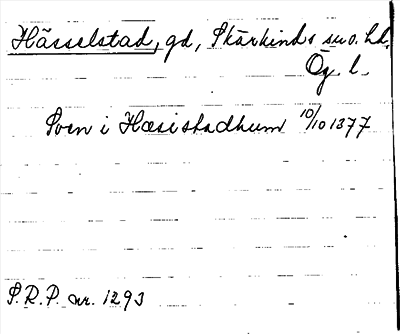 Hässelstad, gd, Skärkinds su o. hd,
Ög. l.
Sven i Hæsistadhum 10/10 1377
S.R.P. nr. 1293